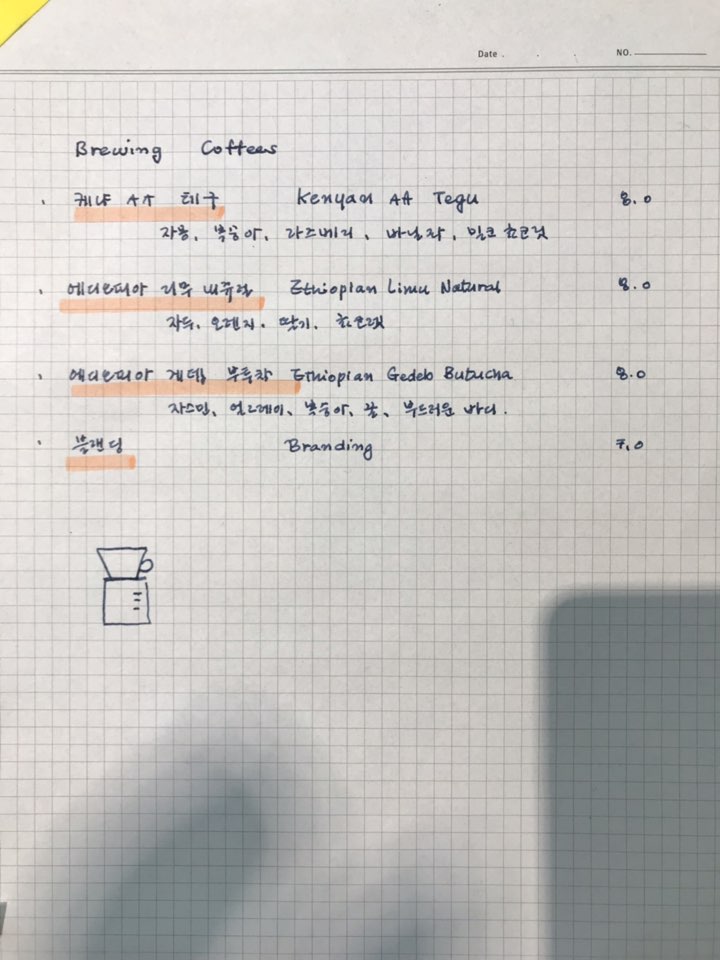 Date . . . NO.
Brewing Coffees
· 케냐 AA 테구 Kenyan AA Tegu 8.0
자몽, 복숭아, 라즈베리, 바닐라, 밀크 초코릿
· 에디오피아 리무 내츄럴 Ethiopian Limu Natural 8.0
자두, 오렌지, 딸기, 초코렛
· 에디오피아 게뎁 부쿠차 Ethiopian Gedeb Butucha 8.0
자스민, 얼그레이, 복숭아, 꿀, 부드러운 바디.
· 블랜딩 Branding 7.0